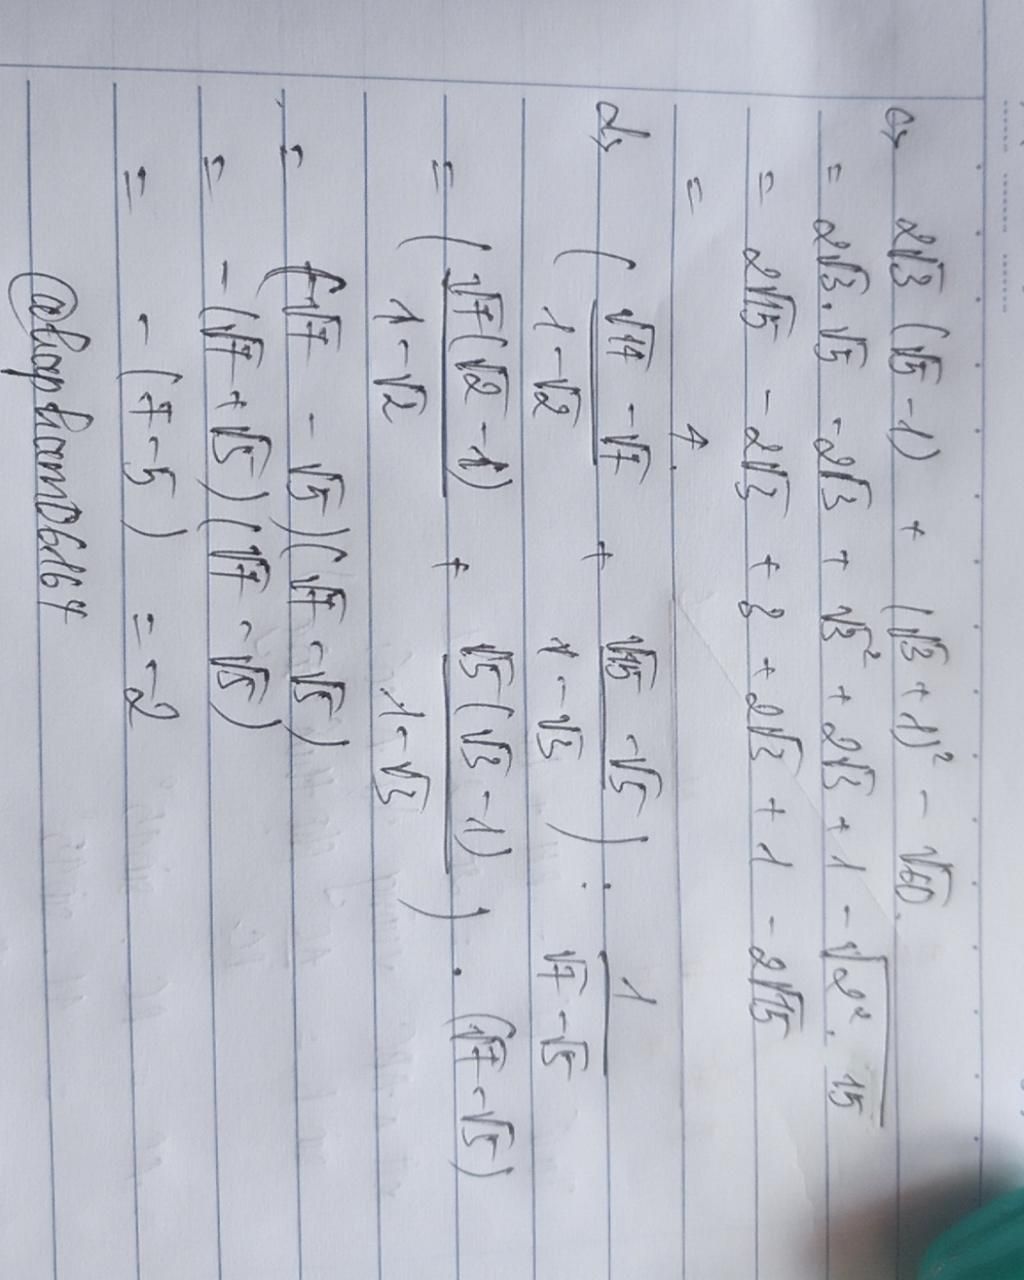 c, 2√3 (√5 - 1) + (√3 + 1)² - √60
= 2√3 . √5 - 2√3 + √3² + 2√3 + 1 - √2² . 15
= 2√15 - 2√3 + 3 + 2√3 + 1 - 2√15
= 4.
d, ( (√14 - √7) / (1 - √2) + (√15 - √5) / (1 - √3) ) : 1 / (√7 - √5)
= ( √7(√2 - 1) / (1 - √2) + √5(√3 - 1) / (1 - √3) ) . (√7 - √5)
= (-√7 - √5)(√7 - √5)
= -(√7 + √5)(√7 - √5)
= - (7 - 5) = -2
@hapham06167